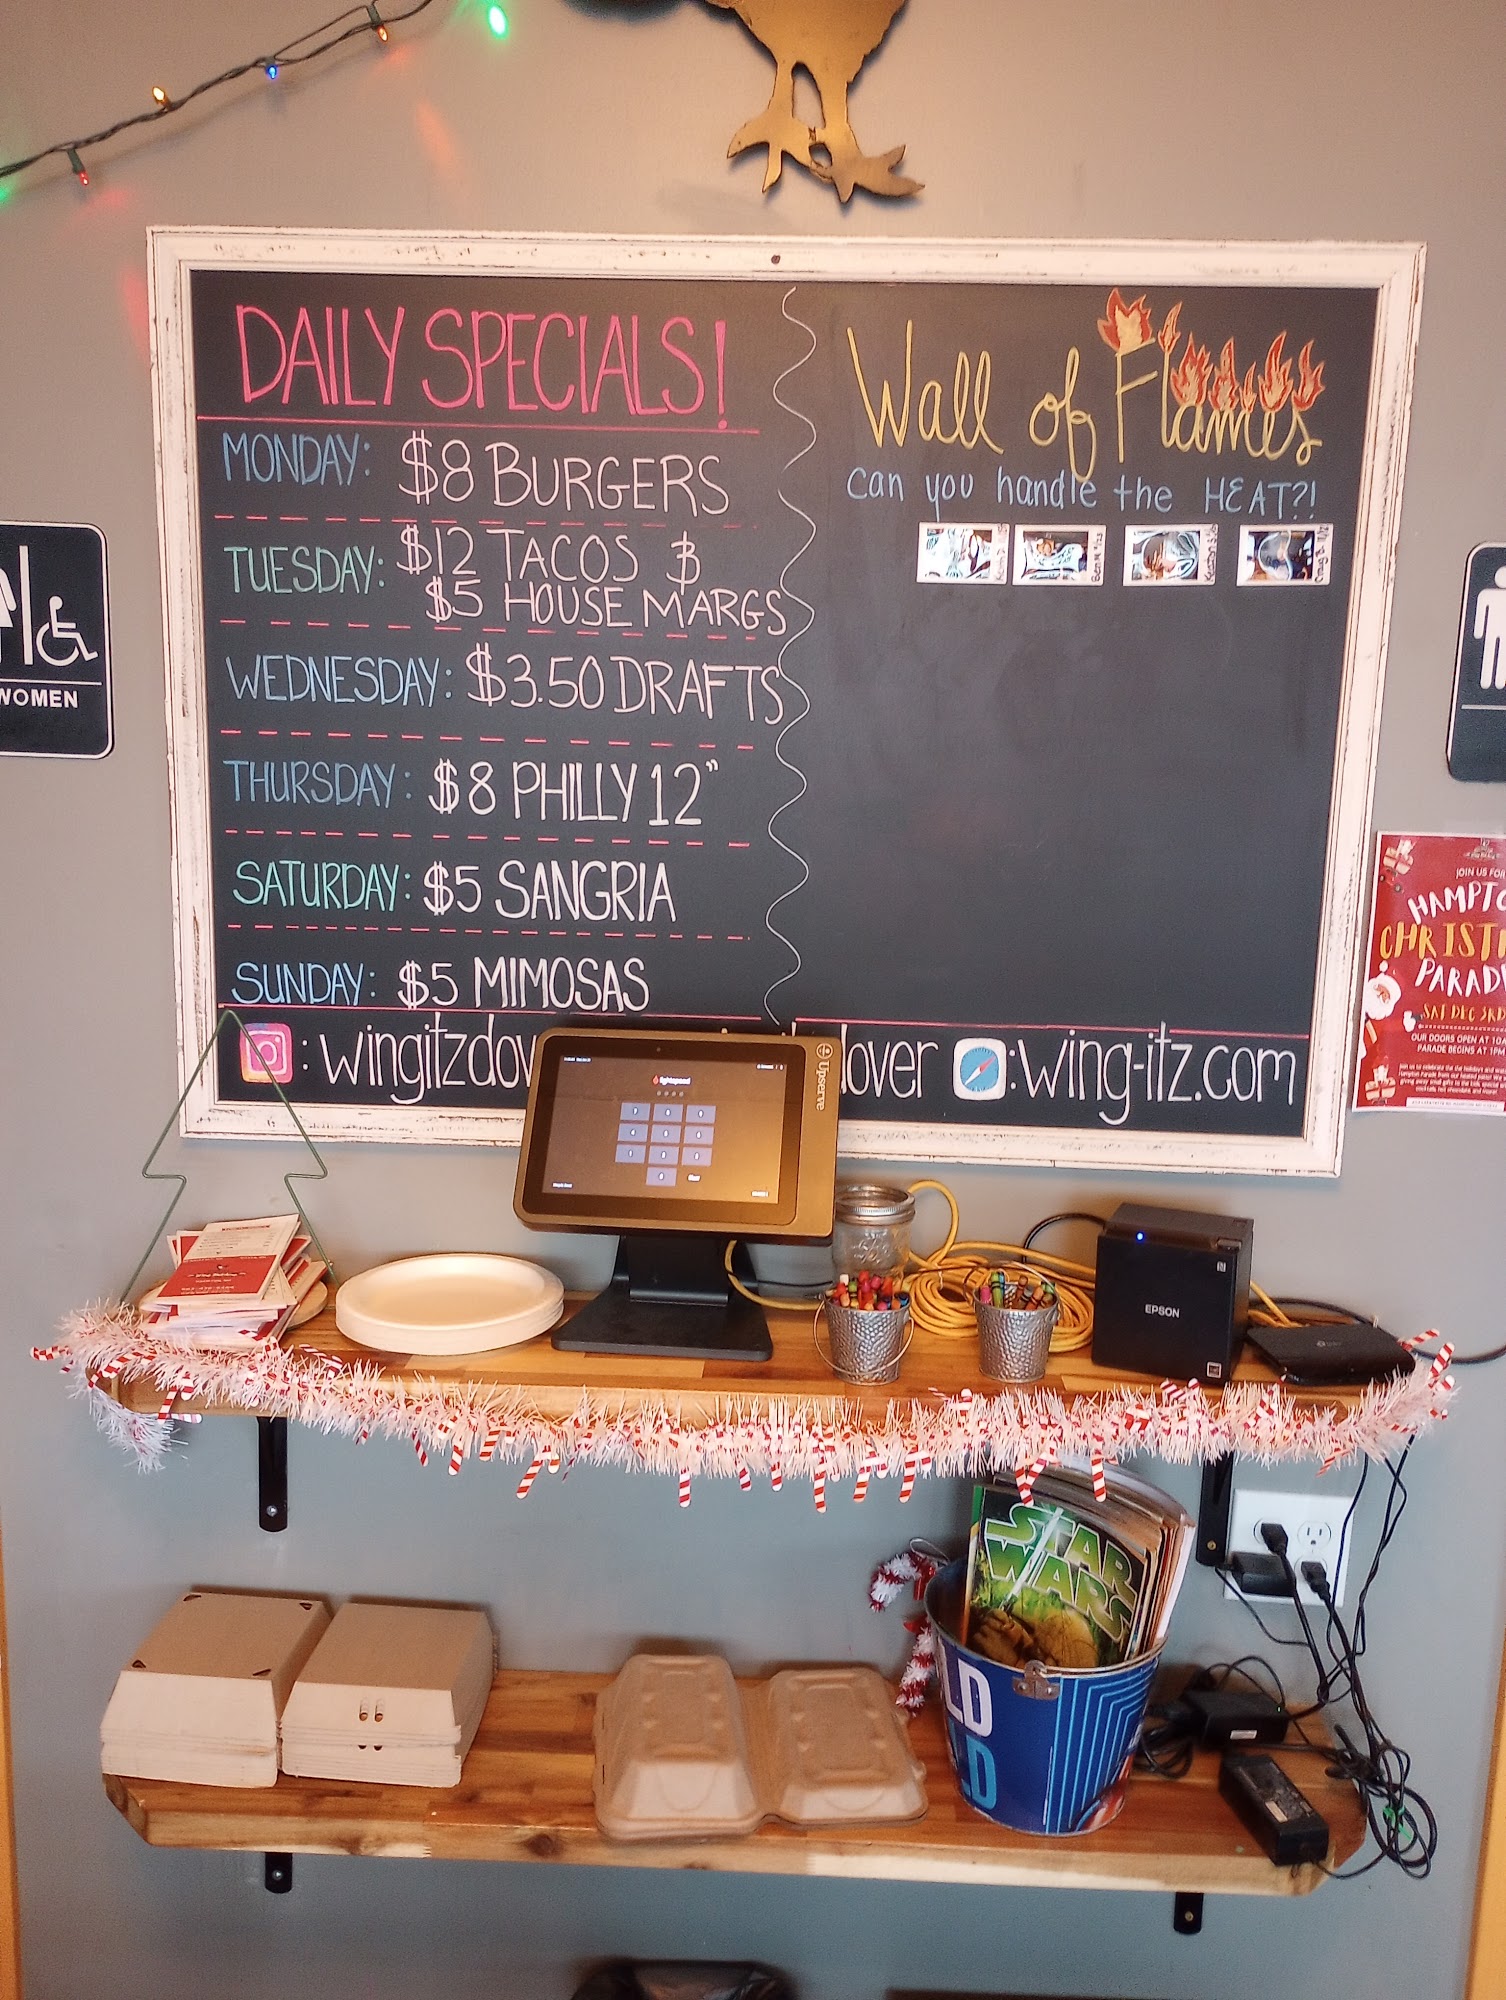 DAILY SPECIALS!
MONDAY: $8 BURGERS
TUESDAY: $12 TACOS &
$5 HOUSE MARGS
WEDNESDAY: $3.50 DRAFTS
THURSDAY: $8 PHILLY 12"
SATURDAY: $5 SANGRIA
SUNDAY: $5 MIMOSAS
Wall of Flames
can you handle the HEAT?!
: wingitzdov
dover
:wing-itz.com
WOMEN
JOIN US FOR
HAMPTO
CHRIST
PARAD
SAT DEC 3RD
OUR DOORS OPEN AT 10A
PARADE BEGINS AT 1PM
Upserve
lightspeed
EPSON
STAR
WARS
LD
D